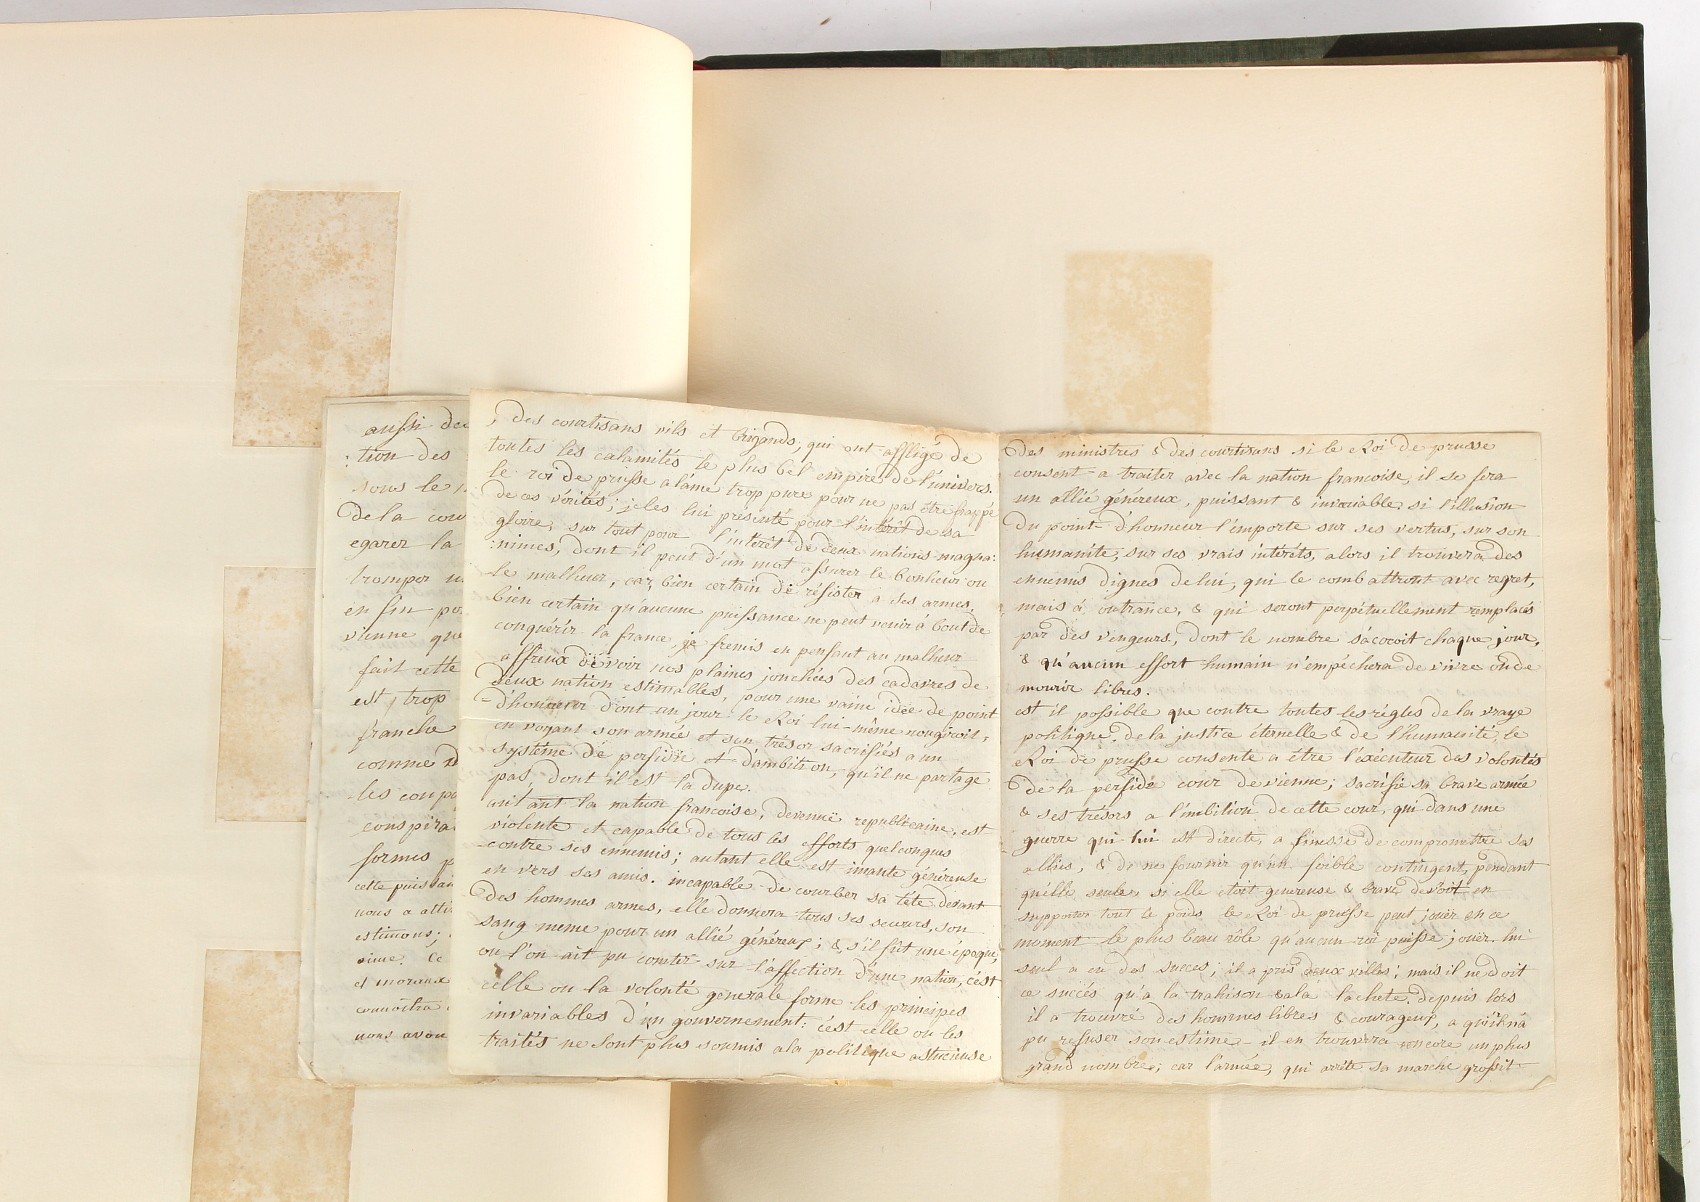 aussi de
tion des
sous le
De la cour
egarer la
tromper u
en fin po
vienne que
fait cette
est trop
franche
comme
les coupa
conspira
formes p
cette puissan
nous a atti
estimons;
sime. Ce
et moraux
connoîtra
nous avon
; Des courtisans vils et brigands, qui ont affligé de
toutes les calamités le plus bel empire de l'univers.
le roi de prusse a lame trop pure pour ne pas être frappé
de ces vérités; je les lui présente pour l'intérêt de sa
gloire, sur tout pour l'intérêt de deux nations magna:
:nimes, dont il peut d'un mot assurer le bonheur ou
le malheur, car, bien certain de résister a ses armes,
bien certain qu'aucune puissance ne peut venir à bout de
conquérir la france je fremis en pensant au malheur
affreux de voir nos plaines jonchées des cadavres de
deux nation estimables, pour une vaine idée de point
d'honneur dont un jour le Roi lui-même rougiroit,
en voyant son armée et son trésor sacrifiés a un
système de perfidie et dambition, qu'il ne partage
pas, dont il est la dupe.
autant la nation francoise, devenue republicaine, est
violente et capable de tous les efforts quelconques
contre ses ennemis; autant elle est aimante généreuse
en vers ses amis. incapable de courber sa tête devant
Des hommes armes, elle donnera tous ses secours, son
sang meme pour un allié généreux; & s'il fût une époque,
ou l'on ait pu conter sur l'affection d'une nation, c'est
celle ou la volonté generale forme les principes
invariables d'un gouvernement: c'est celle ou les
traités ne sont plus soumis a la politique astucieuse
Des ministres & des courtisans si le Roi de prusse
consent a traiter avec la nation francoise, il se fera
un allié généreux, puissant & invariable, si l'illusion
Du point d'honneur l'emporte sur ses vertus, sur son
humanité, sur ses vrais intérêts, alors il trouvera des
ennemis dignes de lui, qui le combattront avec regret,
mais à outrance, & qui seront perpétuellement remplacés
par des vengeurs, dont le nombre s'acocoit chaque jour,
& qu'aucun effort humain n'empêchera de vivre ou de
mourir libres.
est il possible que contre toutes les règles de la vraye
politique, de la justice éternelle & de l'humanité, le
Roi de prusse consente a être l'exécuteur des volontés
De la perfide cour de vienne; sacrifie sa brave armée
& ses trésors a l'ambition de cette cour, qui dans une
guerre qui lui est directe, a finesse de compromettre ses
alliés, & de ne fournir qu'un foible contingent, pendant
qu'elle seule, si elle étoit genereuse & brave devoit en
supporter tout le poids. le Roi de prusse peut jouer en ce
moment le plus beau rôle qu'aucun roi puisse jouer. lui
seul a eu des succes; il a pris deux villes; mais il ne doit
ce succés qu'a la trahison & a la lachete. depuis lors
il a trouvé des hommes libres & courageux, a qui il n'a
pu refuser son estime - il en trouvera encore un plus
grand nombre; car l'armée, qui arrête sa marche grossit